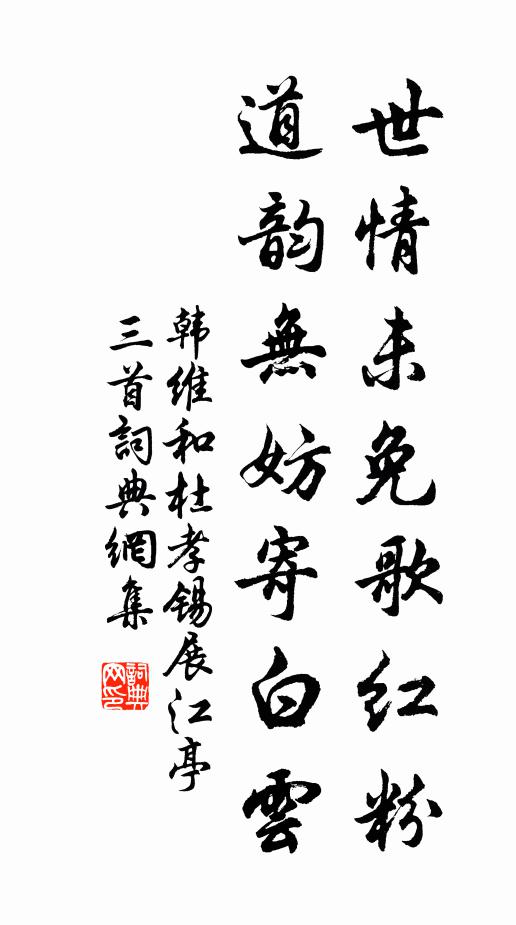 世情未免歌红粉
道韵無妨寄白雲
韩維和杜孝锡展江亭
三首詞典網集
詞典
网印